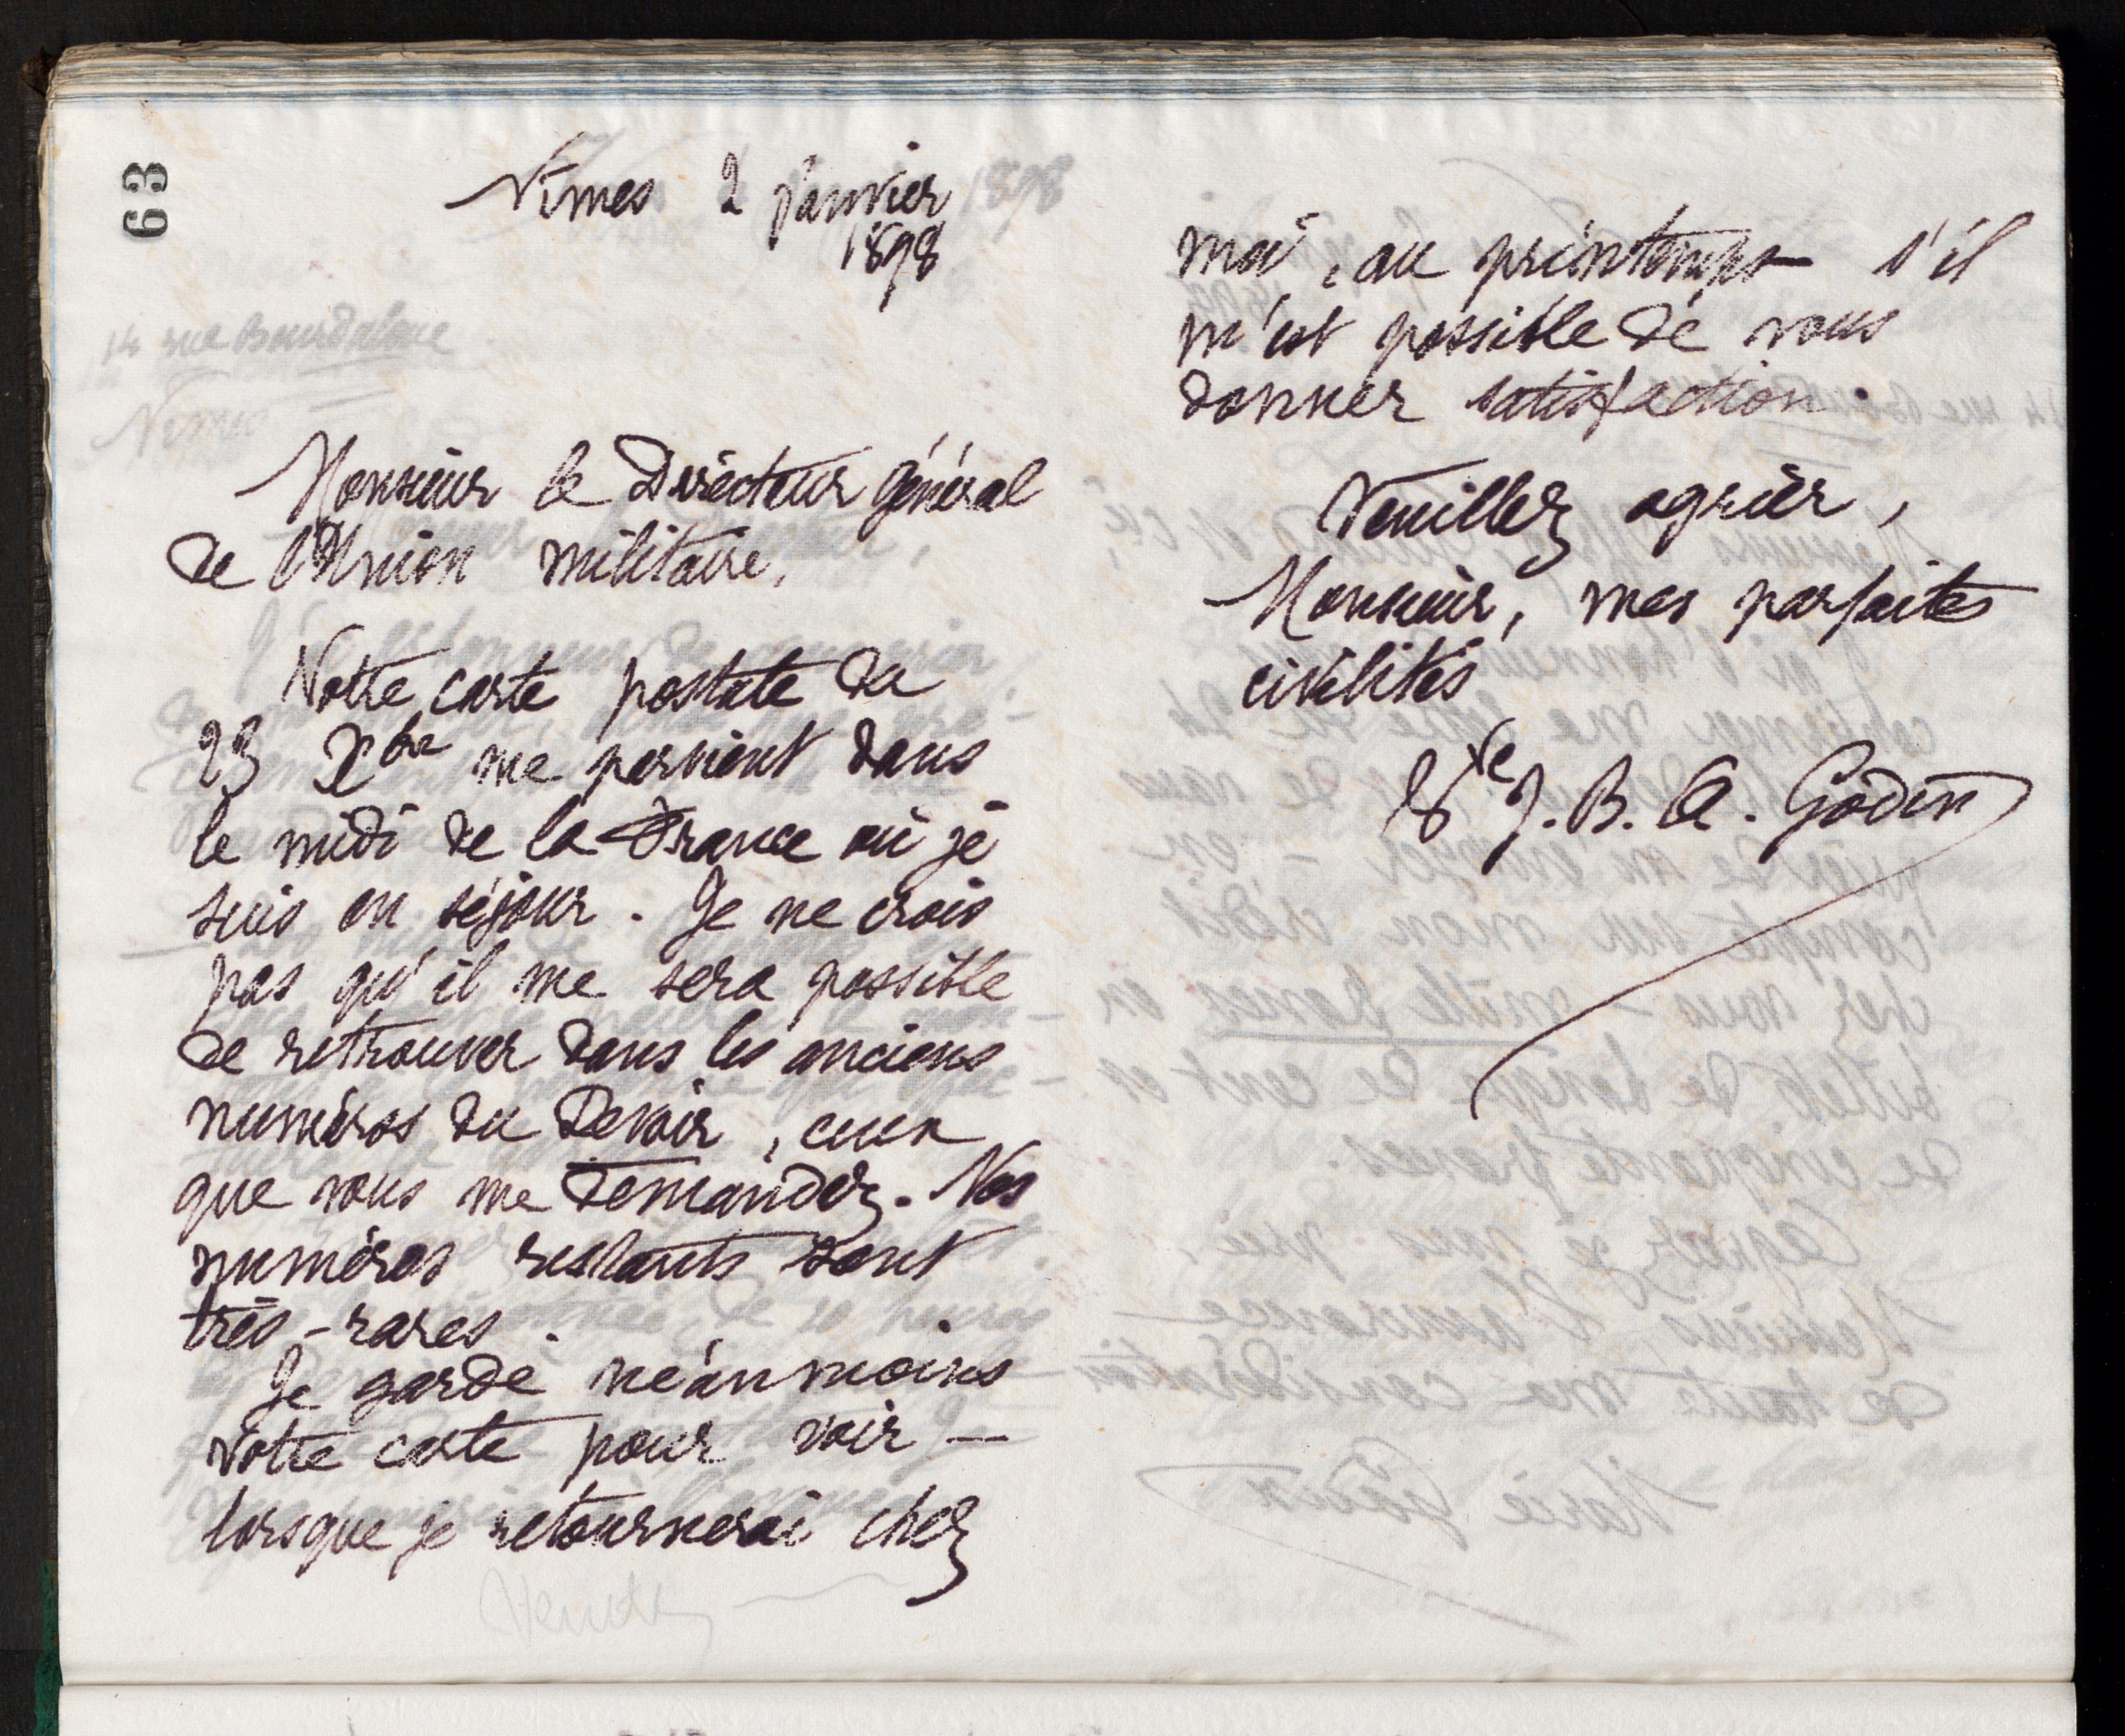 63
Nîmes 2 Janvier
1898
Monsieur le Directeur général
de l'Union militaire,
Votre carte postale du
23 Xbre me parvient dans
le midi de la France où je
suis en séjour. Je ne crois
pas qu'il me sera possible
de retrouver dans les anciens
numéros du Devoir, ceux
que vous me demandez. Nos
numéros restants sont
très-rares.
Je garde néanmoins
votre carte pour voir —
lorsque je retournerai chez
moi, au printemps s'il
m'est possible de vous
donner satisfaction.
Veuillez agréer,
Monsieur, mes parfaites
civilités
Vve J. B. A. Godin